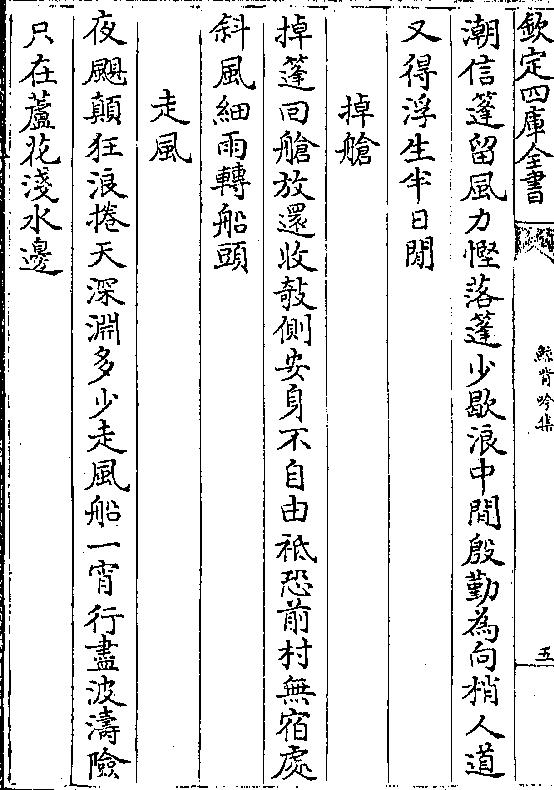 欽定四庫全書
鯨背吟集
五
潮信篷留風力慳落篷少歇浪中間殷勤為向梢人道
又得浮生半日閒
掉艙
掉篷回艙放還收攲側安身不自由祗恐前村無宿處
斜風細雨轉船頭
走風
夜颶顛狂浪捲天深淵多少走風船一宵行盡波濤險
只在蘆花淺水邊